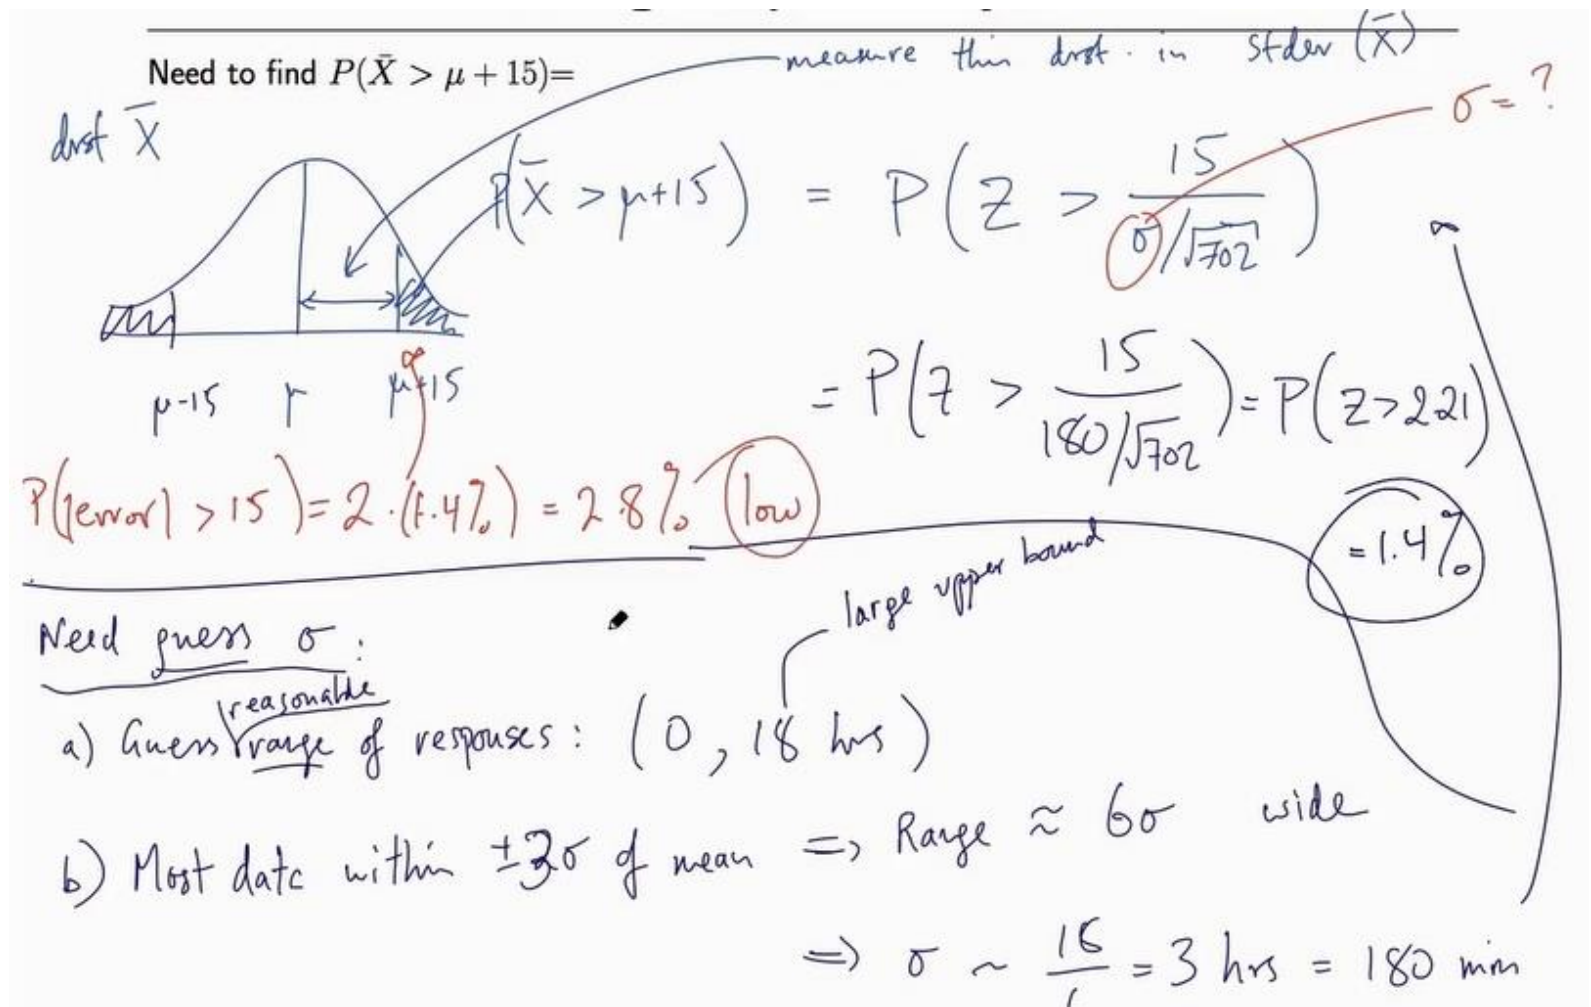 Need to find P(X̄ > μ + 15)=
measure this dist. in stdev (X̄)
σ = ?
dist X̄
P(X̄ > μ+15) = P(Z > 15 / (σ/√702))
μ-15 μ μ+15
= P(Z > 15 / (180/√702)) = P(Z > 2.21)
= 1.4%
P(|error| > 15) = 2·(1.4%) = 2.8% low
Need guess σ:
large upper bound
reasonable
a) Guess range of responses: (0, 18 hrs)
b) Most data within ±3σ of mean => Range ≈ 6σ wide
=> σ ~ 18/6 = 3 hrs = 180 min